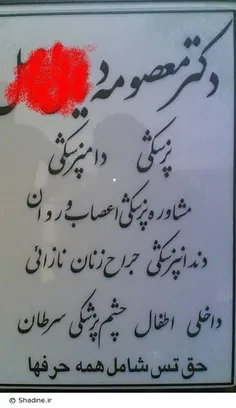 دکتر معصومه
پزشکی دامپزشکی
مشاوره پزشکی اعصاب و روان
دندانپزشکی جراح زنان نازائی
داخلی اطفال چشم پزشکی سرطان
حق تس شامل همه حرفها
© Shadine.ir